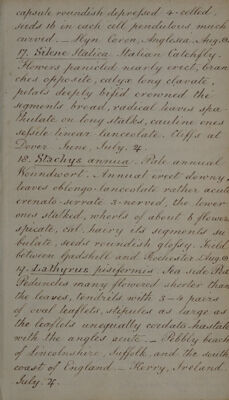 capsule roundish depressed 4-celled
seeds 16 in each cell pendulous much
curved. — Myn Coren, Anglesea. Aug.
17. Silene Italica. Italian Catchfly.
Flowers panicled nearly erect, bran
ches opposite, calyx long clavate,
petals deeply bifid crowned the
segments broad, radical leaves spa
thulate on long stalks, cauline ones
sessile linear lanceolate. Cliffs at
Dover. June, July. ♃.
18. Stachys annua. Pale annual
Woundwort. Annual erect downy
leaves oblongo-lanceolate rather acute
crenato-serrate 3-nerved, the lower
ones stalked, whorls of about 6 flowers
spicate, cal. hairy its segments su
bulate, seeds roundish glossy. Field
between Gadshill and Rochester. Aug.
19. Lathyrus pisiformis. Sea side Pea
Peduncles many flowered shorter than
the leaves, tendrils with 3-4 pairs
of oval leaflets, stipules as large as
the leaflets unequally cordate-hastate
with the angles acute. — Pebbly beach
of Lincolnshire, Suffolk, and the south
coast of England. — Kerry, Ireland.
July. ♃.